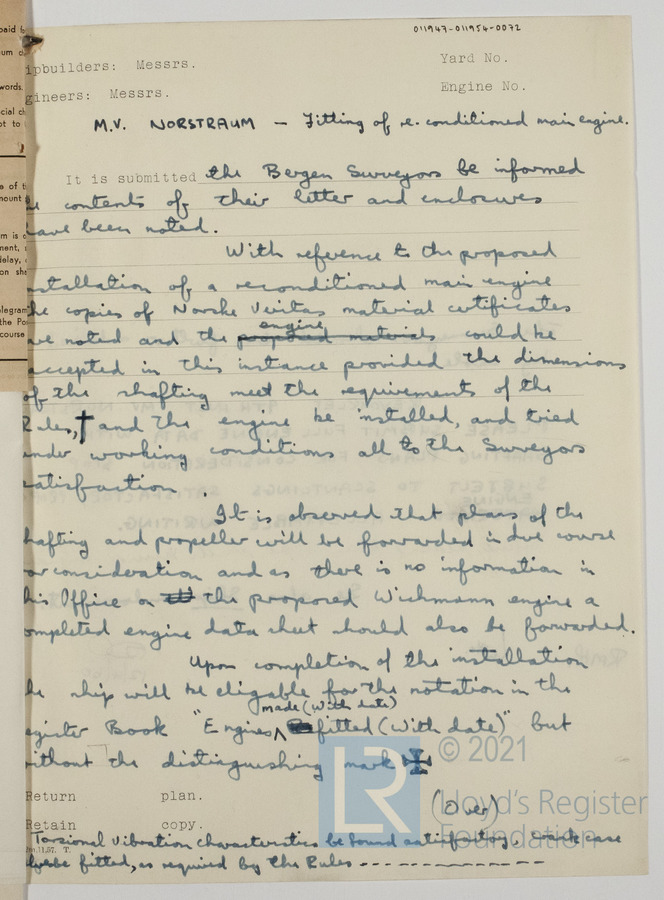 011947-011954-0072
ipbuilders: Messrs. Yard No.
gineers: Messrs. Engine No.
M.V. NORSTRAUM — Fitting of re.conditioned main engine.
It is submitted the Bergen Surveyors be informed
he contents of their letter and enclosures
ave been noted.
With reference to the proposed
nstallation of a reconditioned main engine
he copies of Norske Veritas material certificates
re noted and the proposed materials engine could be
accepted in this instance provided the dimensions
of the shafting meet the requirements of the
Rules,† and the engine be installed, and tried
under working conditions all to the Surveyors
satisfaction.
It is observed that plans of the
hafting and propeller will be forwarded in due course
or consideration and as there is no information in
his Office on the proposed Wichmann engine a
ompleted engine data sheet should also be forwarded.
Upon completion of the installation
he ship will be eligable for the notation in the
made (with date)
egister Book "Engines fitted (with date)" but
ithout the distinguishing mark ✠
(Over)
Return plan.
Retain copy.
Torsional Vibration characteristics be found satisfactory. case
be fitted, as required by the Rules
© 2021
LR
Lloyd's Register
Foundation
paid b
um o
words.
cial ch
ot to
e of t
mount
m is c
ment,
delay,
on sha
elegram
the Po
course